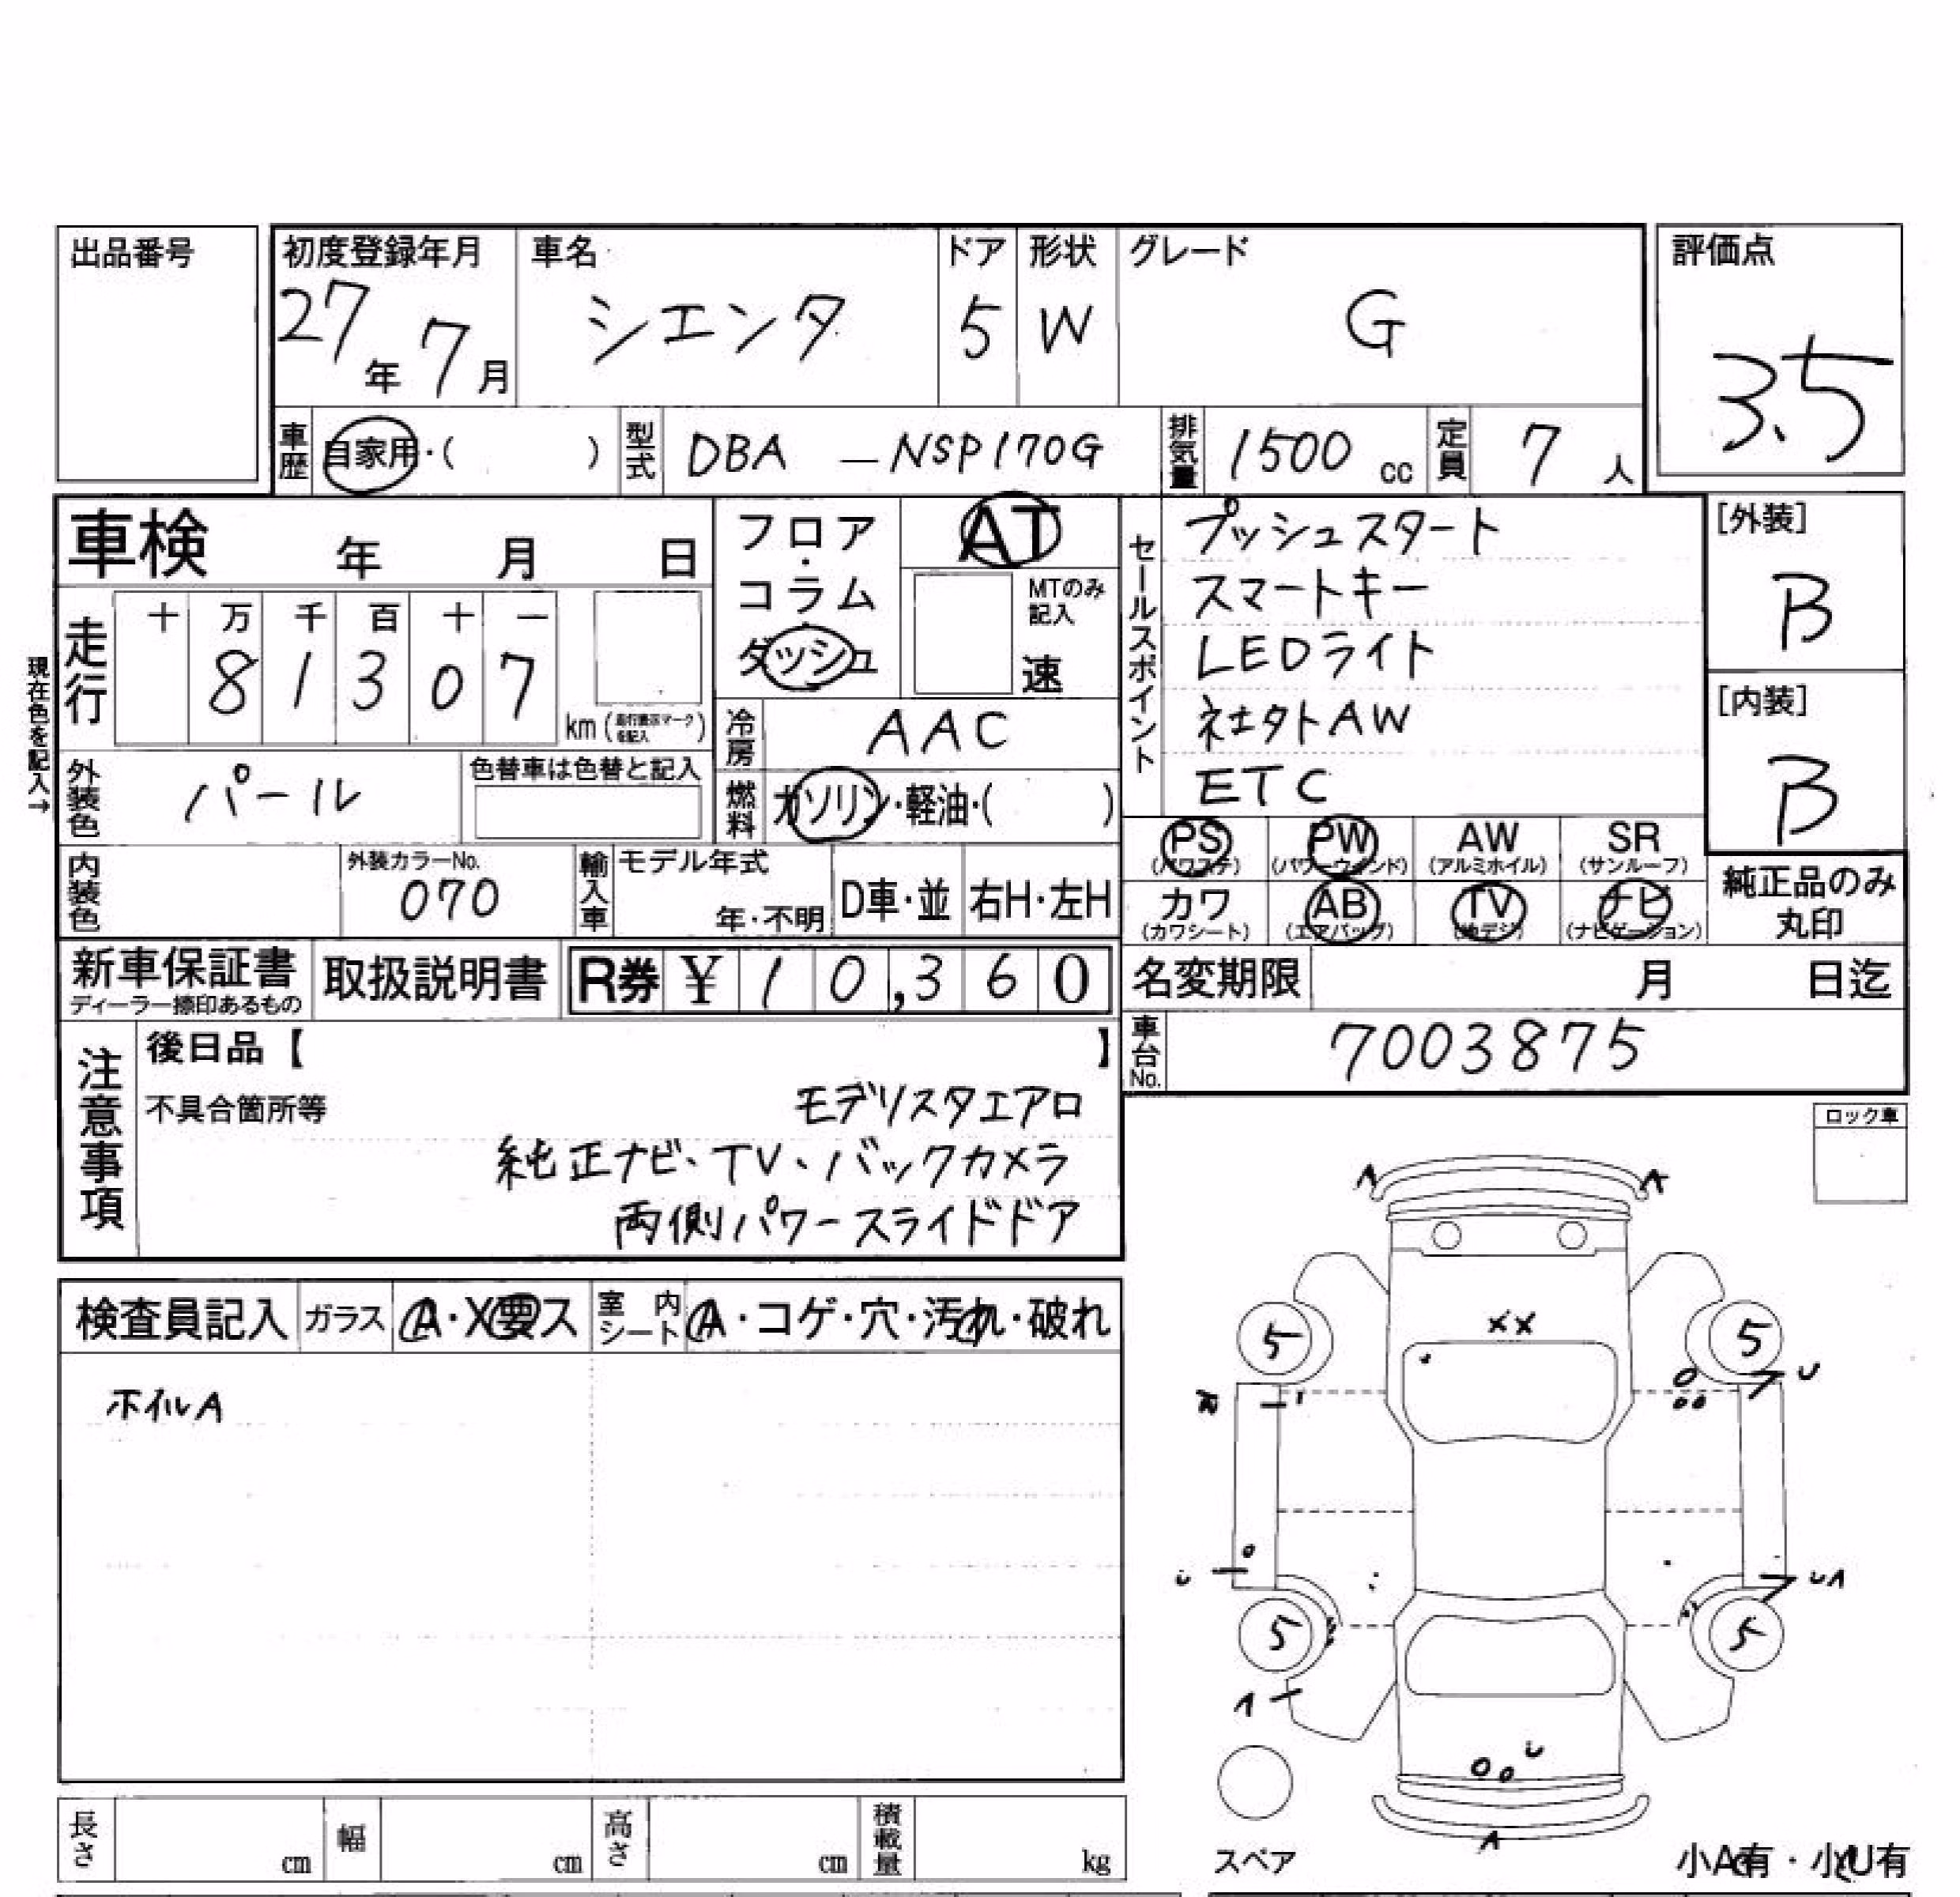 出品番号
初度登録年月 車名 ドア 形状 グレード 評価点
27年 7月 シエンタ 5 W G 3.5
車歴 自家用・( ) 型式 DBA - NSP170G 排気量 1500 cc 定員 7 人
車検 年 月 日
フロア・コラム・ダッシュ
AT
MTのみ記入
速
セールスポイント
プッシュスタート
スマートキー
LEDライト
社外AW
ETC
[外装]
B
[内装]
B
現在色を記入→
走行 十 万 千 百 十 一
8 1 3 0 7
km (走行表示マークを記入)
冷房 AAC
外装色 パール 色替車は色替と記入
燃料 ガソリン・軽油・( )
PS (パワステ) PW (パワーウィンド) AW (アルミホイル) SR (サンルーフ)
カワ (カワシート) AB (エアバッグ) TV (地デジ) ナビ (ナビゲーション)
純正品のみ丸印
内装色 外装カラーNo. 070 輸入車 モデル年式 年・不明 D車・並 右H・左H
新車保証書 ディーラー捺印あるもの 取扱説明書 R券 ¥ 10,360
名変期限 月 日迄
車台No. 7003875
注意事項
後日品【 】
不具合箇所等 モデリスタエアロ
純正ナビ、TV、バックカメラ
両側パワースライドドア
ロック車
検査員記入 ガラス A・X要ス 室内シート A・コゲ・穴・汚れ・破れ
ホイルA
A A
XX
5 5
U
5 5
A
スペア
小A有・小U有
長さ cm 幅 cm 高さ cm 積載量 kg